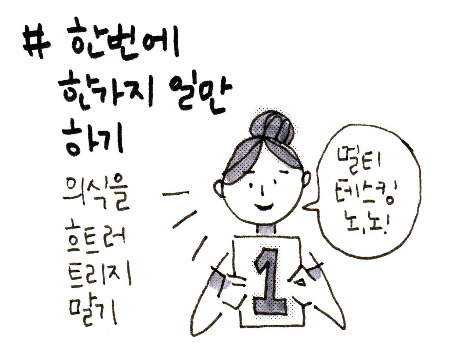 # 한번에
한가지 일만
하기
의식을
흐트러
트리지
말기
멀티
테스킹
노,노!
1